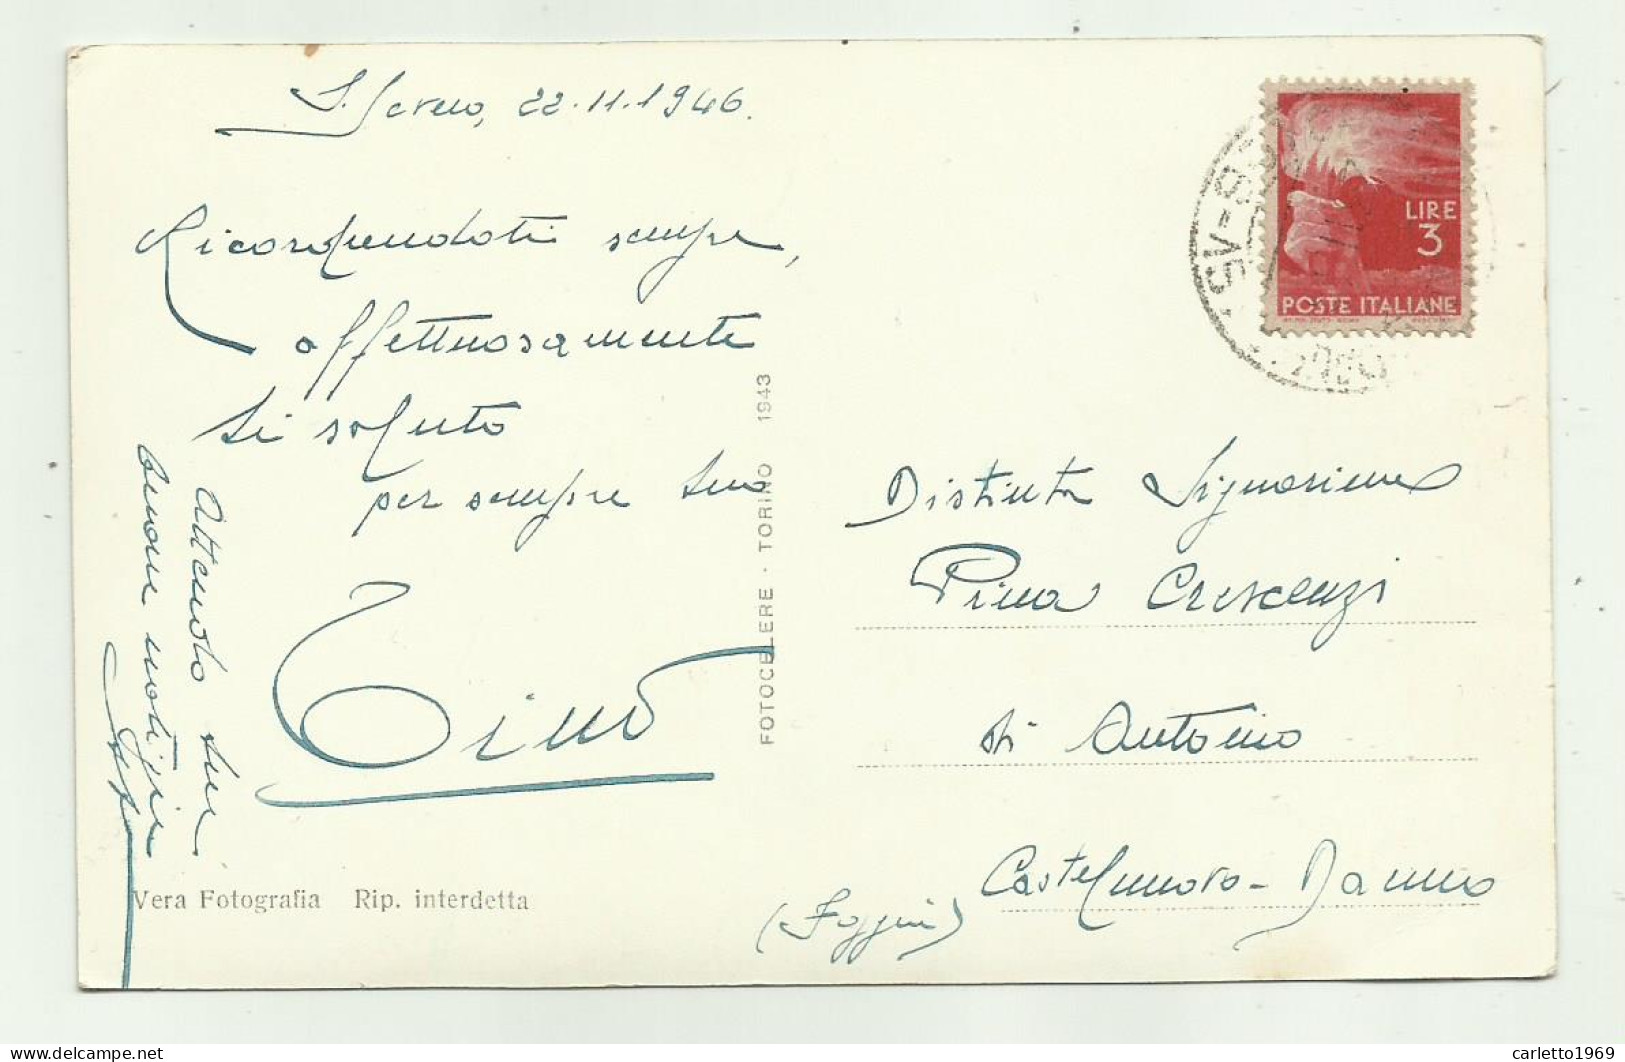 S. Severo, 22.11.1946.
Ricordandoti sempre,
affettuosamente
ti saluto
per sempre tuo
Tino
Attendo tue
buone notizie
FOTOCELERE · TORINO 1943
Vera Fotografia Rip. interdetta
LIRE
3
POSTE ITALIANE
Distinta Signorina
Pina Crescenzi
di Antonio
Castelnuovo-Dauno
(Foggia)
carletto1969